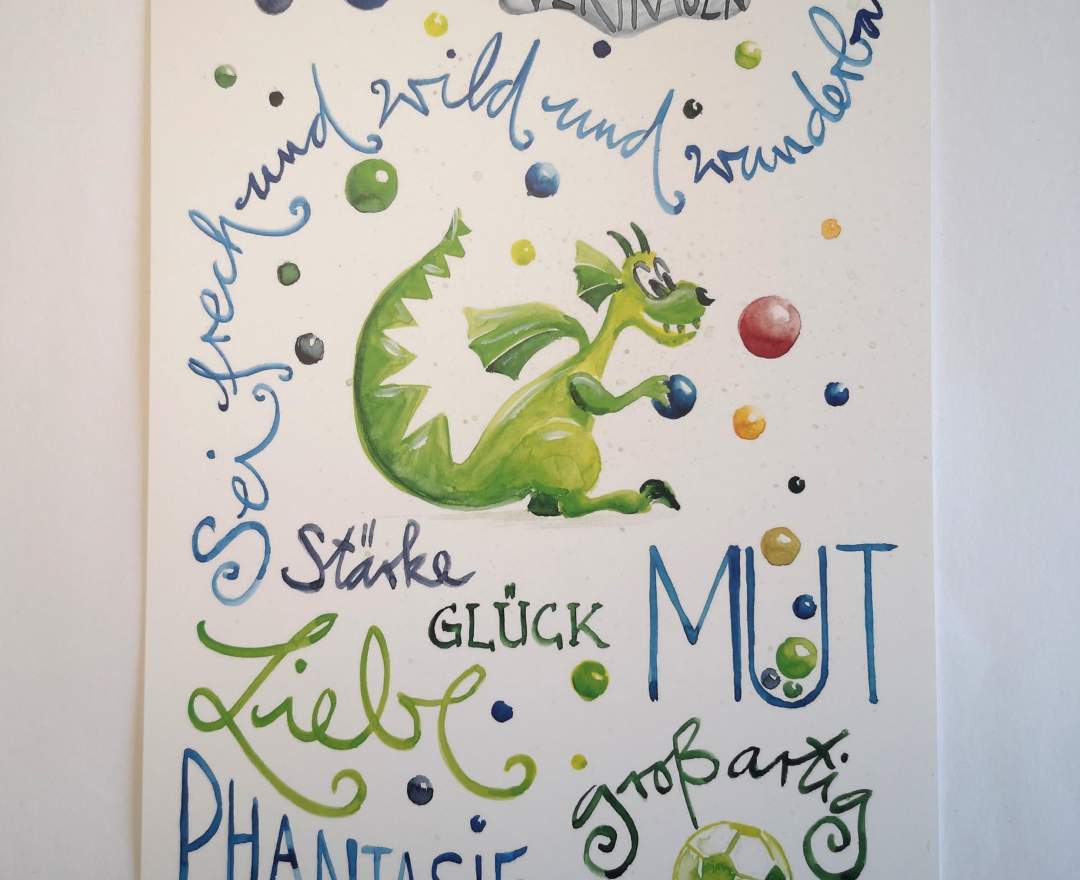 VERTRAUEN
Sei frech und wild und wunderba
Stärke
GLÜCK
MUT
Liebe
großartig
PHANTASIE